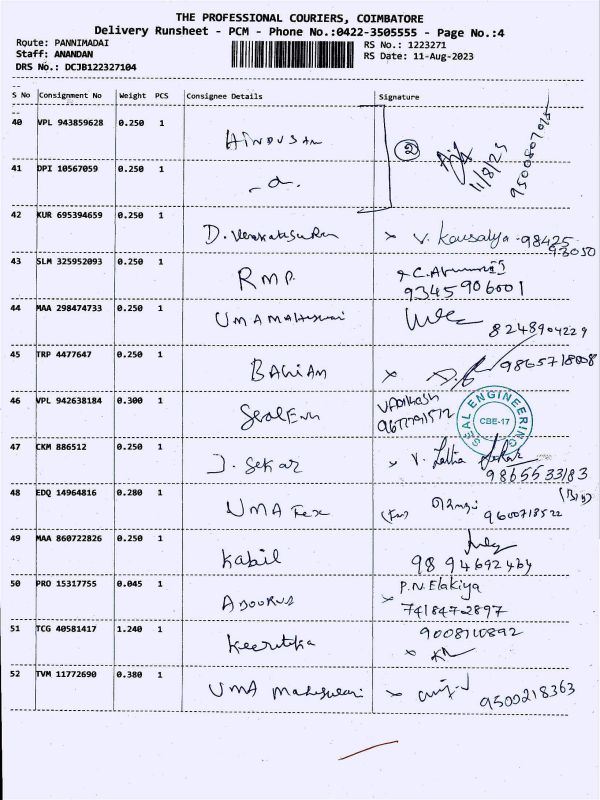 THE PROFESSIONAL COURIERS, COIMBATORE
Delivery Runsheet - PCM - Phone No.:0422-3505555 - Page No.:4
Route: PANNIMADAI
RS No.: 1223271
Staff: ANANDAN
RS Date: 11-Aug-2023
DRS No.: DCJB122327104
S No Consignment No Weight PCS Consignee Details Signature
40 VPL 943859628 0.250 1 HINDUSAN 2 11/8/23
41 DPI 10567059 0.250 1
42 KUR 695394659 0.250 1 V. Kousalya 98425
93050
43 SLM 325952093 0.250 1 RMP.
9345906001
44 MAA 298474733 0.250 1 UMAMaheswari
8248904229
45 TRP 4477647 0.250 1 9865718008
46 VPL 942638184 0.300 1
SEAL ENGINEERING CBE-17
47 CKM 886512 0.250 1 J. Sekar V. Latha Sekar
48 EDQ 14964816 0.280 1 UMA Tex 9600718522
49 MAA 860722826 0.250 1 Kabil
9894692464
50 PRO 15317755 0.045 1 P.N. Elakiya
7418472897
51 TCG 40581417 1.240 1 Keertika
52 TVM 11772690 0.380 1 UMA Maheswari 9500218363